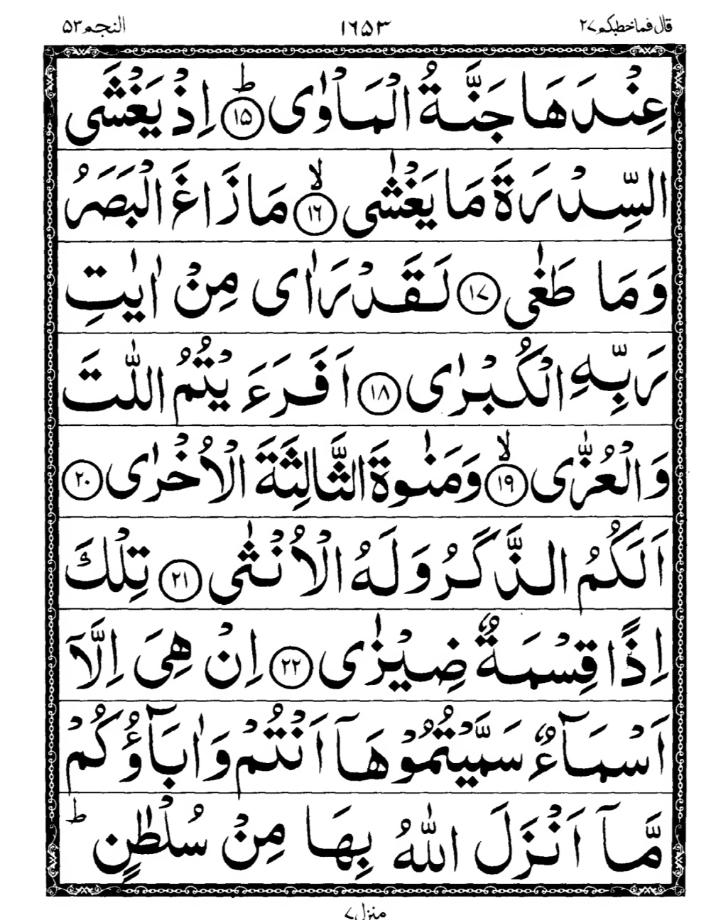 قال فما خطبكم ٢٧ ١٦٥٣ النجم ٥٣
عِنْدَهَا جَنَّةُ الْمَاْوٰى ؕ‏﴿۱۵﴾ اِذْ يَغْشَى
السِّدْرَةَ مَا يَغْشٰى ۙ‏﴿۱۶﴾ مَا زَاغَ الْبَصَرُ
وَمَا طَغٰى ﴿۱۷﴾ لَقَدْ رَاٰى مِنْ اٰيٰتِ
رَبِّهِ الْكُبْرٰى ﴿۱۸﴾ اَفَرَءَيْتُمُ اللّٰتَ
وَالْعُزّٰى ۙ‏﴿۱۹﴾ وَمَنٰوةَ الثَّالِثَةَ الْاُخْرٰى ﴿۲۰﴾
اَلَكُمُ الذَّكَرُ وَلَهُ الْاُنْثٰى ﴿۲۱﴾ تِلْكَ
اِذًا قِسْمَةٌ ضِيْزٰى ﴿۲۲﴾ اِنْ هِىَ اِلَّاۤ
اَسْمَآءٌ سَمَّيْتُمُوْهَاۤ اَنْتُمْ وَاٰبَآؤُكُمْ
مَّاۤ اَنْزَلَ اللّٰهُ بِهَا مِنْ سُلْطٰنٍ ؕ
منزل ٧